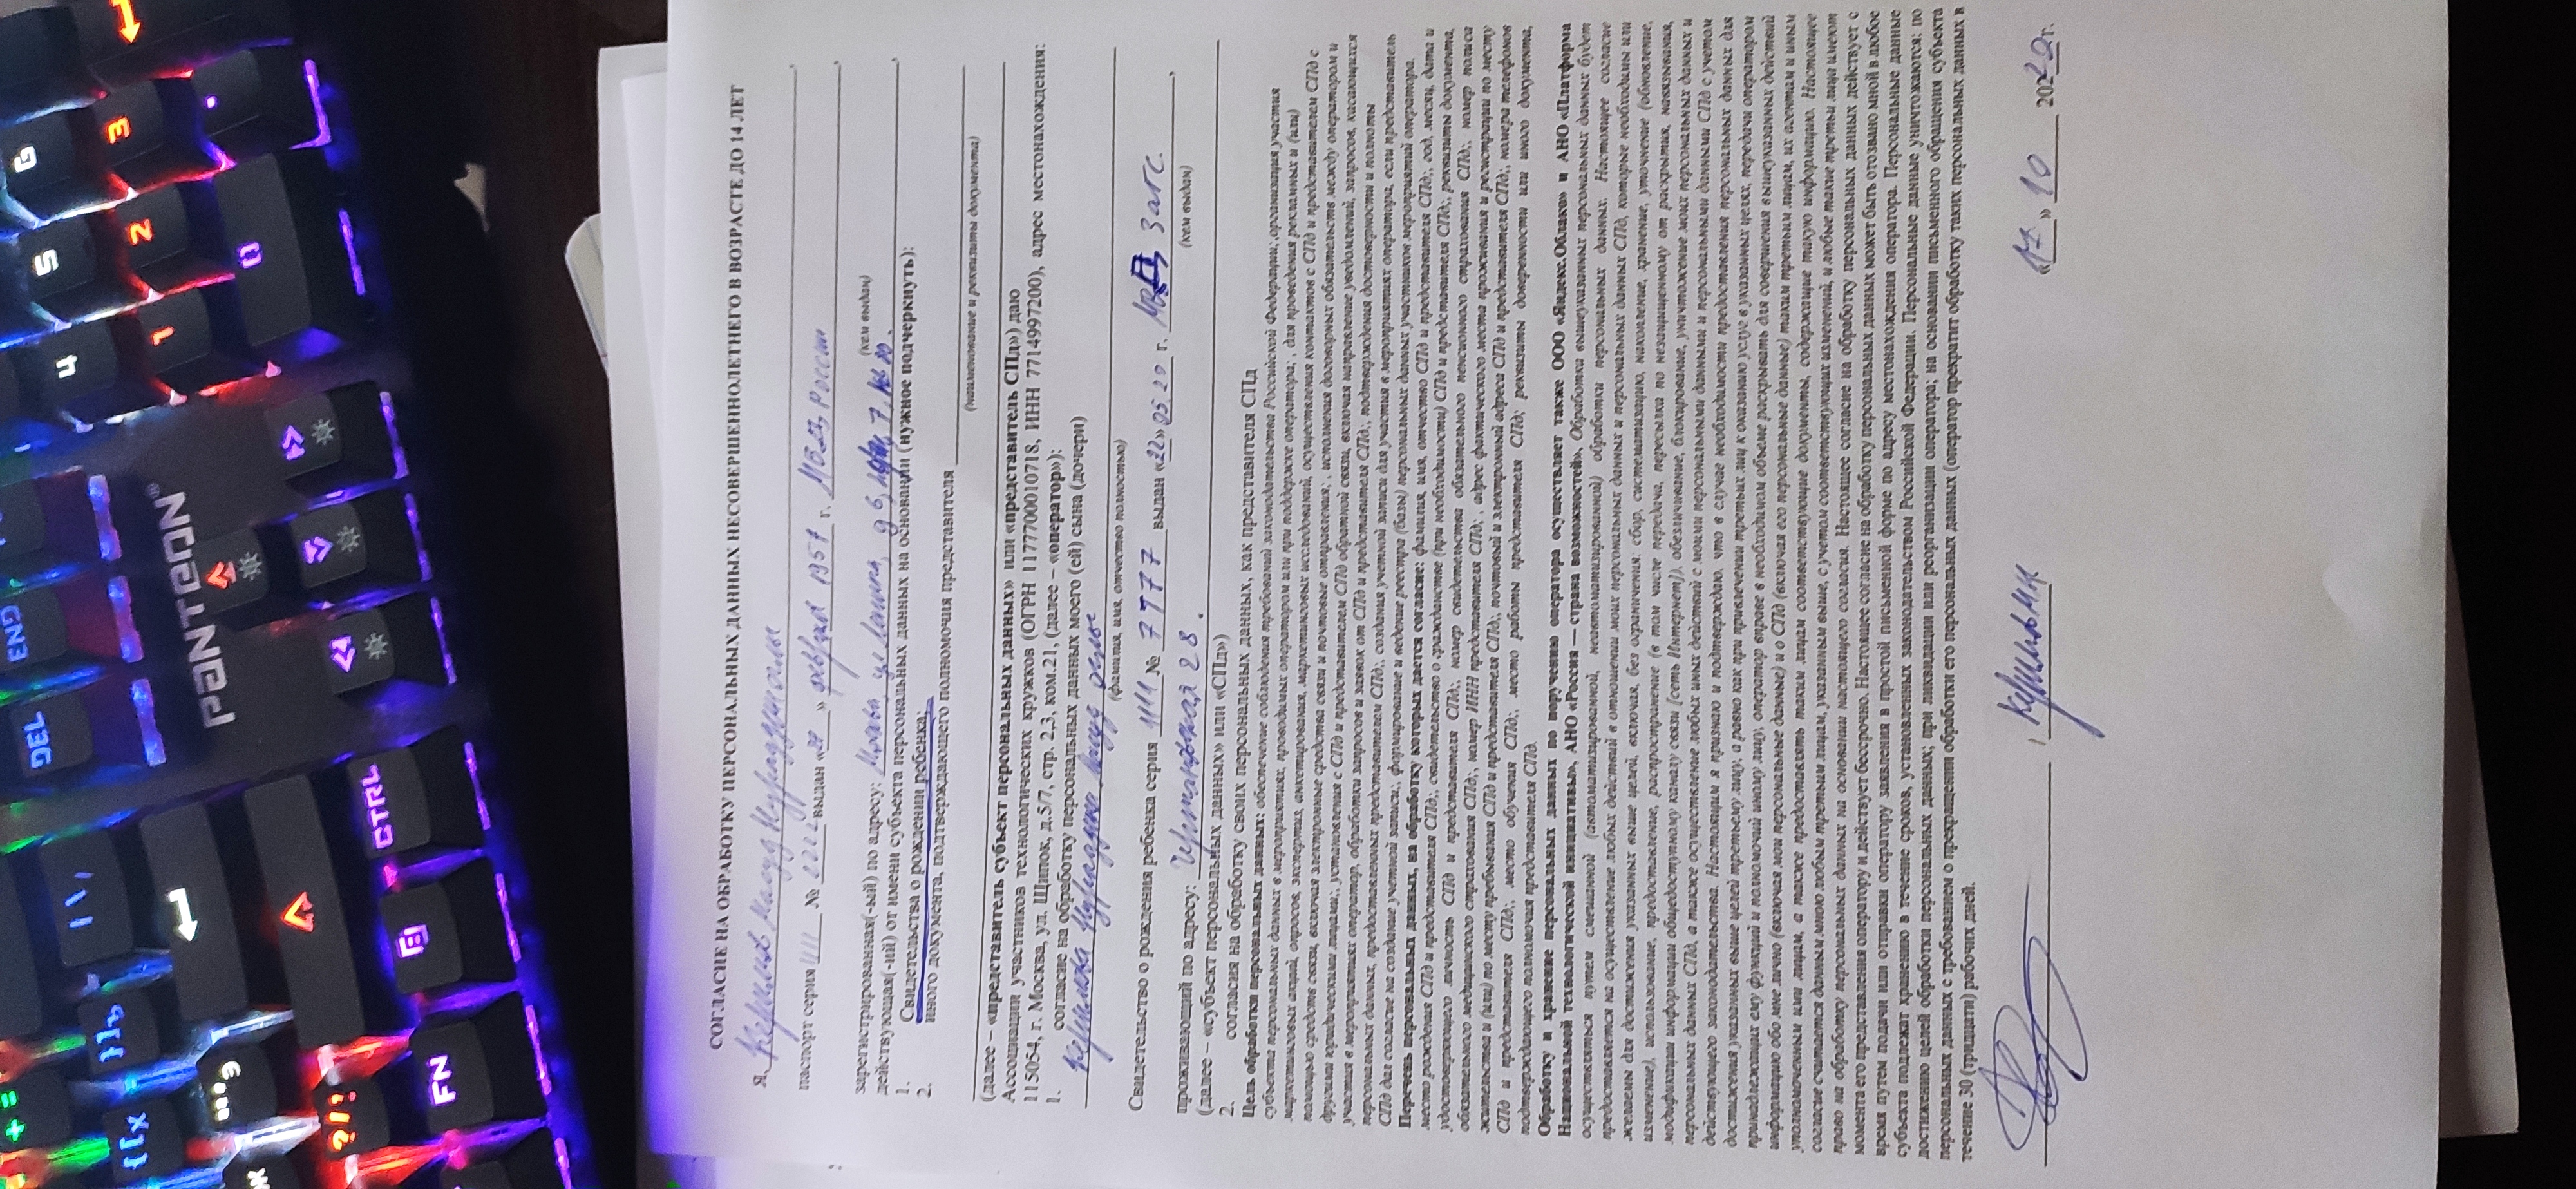 + =
DEL
END
4
5
6
{ [ х
} ] ъ
| \ /
1
2
3
PANTEON®
" ' э
ж
? / !
CTRL
FN
СОГЛАСИЕ НА ОБРАБОТКУ ПЕРСОНАЛЬНЫХ ДАННЫХ НЕСОВЕРШЕННОЛЕТНЕГО В ВОЗРАСТЕ ДО 14 ЛЕТ
Я, Керимов Масуд Нураддин оглы,
паспорт серия 1111 № 2222 выдан «28» февраля 1957 г. МВД России,
(кем выдан)
зарегистрированная(-ый) по адресу: Москва, ул Ленина, д 6, 7, кв 20.,
действующая(-ий) от имени субъекта персональных данных на основании (нужное подчеркнуть):
1. Свидетельства о рождении ребенка;
2. иного документа, подтверждающего полномочия представителя
(наименование и реквизиты документа)
(далее – «представитель субъект персональных данных» или «представитель СПд») даю
Ассоциации участников технологических кружков (ОГРН 1177700010718, ИНН 7714997200), адрес местонахождения:
115054, г. Москва, ул. Щипок, д.5/7, стр. 2,3, ком.21, (далее – «оператор»):
1. согласие на обработку персональных данных моего (ей) сына (дочери)
Керимова Нураддина Масуд оглы
(фамилия, имя, отчество полностью)
Свидетельство о рождения ребенка серия 1111 № 7777 выдан «22» 05.20 г. МВД ЗАГС.,
(кем выдан)
проживающий по адресу: Чертановская 28.
(далее – «субъект персональных данных» или «СПд»)
2. согласия на обработку своих персональных данных, как представителя СПд
Цель обработки персональных данных: обеспечение соблюдения требований законодательства Российской Федерации; ,организация участия
субъекта персональных данных в мероприятиях, проводимых оператором или при поддержке оператора; , для проведения рекламных и (или)
маркетинговых акций, опросов, экспертиз, анкетирования, маркетинговых исследований, осуществления контактов с СПд и представителем СПд с
помощью средств связи, включая электронные средства связи и почтовые отправления; , исполнения договорных обязательств между оператором и
другими юридическими лицами;, установления с СПд и представителем СПд обратной связи, включая направление уведомлений, запросов, касающихся
участия в мероприятиях оператор, обработки запросов и заявок от СПд и представителя СПд;, подтверждения достоверности и полноты
персональных данных, предоставленных представителем СПд;, создания учетной записи для участия в мероприятиях оператора, если представитель
СПд дал согласие на создание учетной записи;, формирование и ведение реестра (базы) персональных данных участников мероприятий оператора.
Перечень персональных данных, на обработку которых дается согласие: фамилия, имя, отчество СПд и представителя СПд;, год, месяц, дата и
место рождения СПд и представителя СПд;, свидетельство о гражданстве (при необходимости) СПд и представителя СПд;, реквизиты документа,
удостоверяющего личность СПд и представителя СПд;, номер свидетельства обязательного пенсионного страхования СПд;, номер полиса
обязательного медицинского страхования СПд;, номер ИНН представителя СПд; , адрес фактического места проживания и регистрации по месту
жительства и (или) по месту пребывания СПд и представителя СПд;, почтовый и электронный адреса СПд и представителя СПд;, номера телефонов
СПд и представителя СПд;, место обучения СПд;, место работы представителя СПд; реквизиты доверенности или иного документа,
подтверждающего полномочия представителя СПд.
Обработку и хранение персональных данных по поручению оператора осуществляет также ООО «Яндекс.Облако» и АНО «Платформа
Национальной технологической инициативы», АНО «Россия — страна возможностей». Обработка вышеуказанных персональных данных будет
осуществляться путем смешанной (автоматизированной, неавтоматизированной) обработки персональных данных. Настоящее согласие
предоставляется на осуществление любых действий в отношении моих персональных данных и персональных данных СПд, которые необходимы или
желаемы для достижения указанных выше целей, включая, без ограничения: сбор, систематизацию, накопление, хранение, уточнение (обновление,
изменение), использование, предоставление, распространение (в том числе передача, пересылка по незащищенному от раскрытия, навязывания,
модификации информации общедоступному каналу связи [сеть Интернет]), обезличивание, блокирование, уничтожение моих персональных данных и
персональных данных СПд, а также осуществление любых иных действий с моими персональными данными и персональными данными СПд с учетом
действующего законодательства. Настоящим я признаю и подтверждаю, что в случае необходимости предоставления персональных данных для
достижения указанных выше целей третьему лицу, а равно как при привлечении третьих лиц к оказанию услуг в указанных целях, передачи оператором
принадлежащих ему функций и полномочий иному лицу, оператор вправе в необходимом объеме раскрывать для совершения вышеуказанных действий
информацию обо мне лично (включая мои персональные данные) и о СПд (включая его персональные данные) таким третьим лицам, их агентам и иным
уполномоченным ими лицам, а также предоставлять таким лицам соответствующие документы, содержащие такую информацию. Настоящее
согласие считается данным мною любым третьим лицам, указанным выше, с учетом соответствующих изменений, и любые такие третьи лица имеют
право на обработку персональных данных на основании настоящего согласия. Настоящее согласие на обработку персональных данных действует с
момента его представления оператору и действует бессрочно. Настоящее согласие на обработку персональных данных может быть отозвано мной в любое
время путем подачи или отправки оператору заявления в простой письменной форме по адресу местонахождения оператора. Персональные данные
субъекта подлежат хранению в течение сроков, установленных законодательством Российской Федерации. Персональные данные уничтожаются: по
достижению целей обработки персональных данных; при ликвидации или реорганизации оператора; на основании письменного обращения субъекта
персональных данных с требованием о прекращении обработки его персональных данных (оператор прекратит обработку таких персональных данных в
течение 30 (тридцати) рабочих дней.
Керимов М.Н. «17» 10 2022 г.